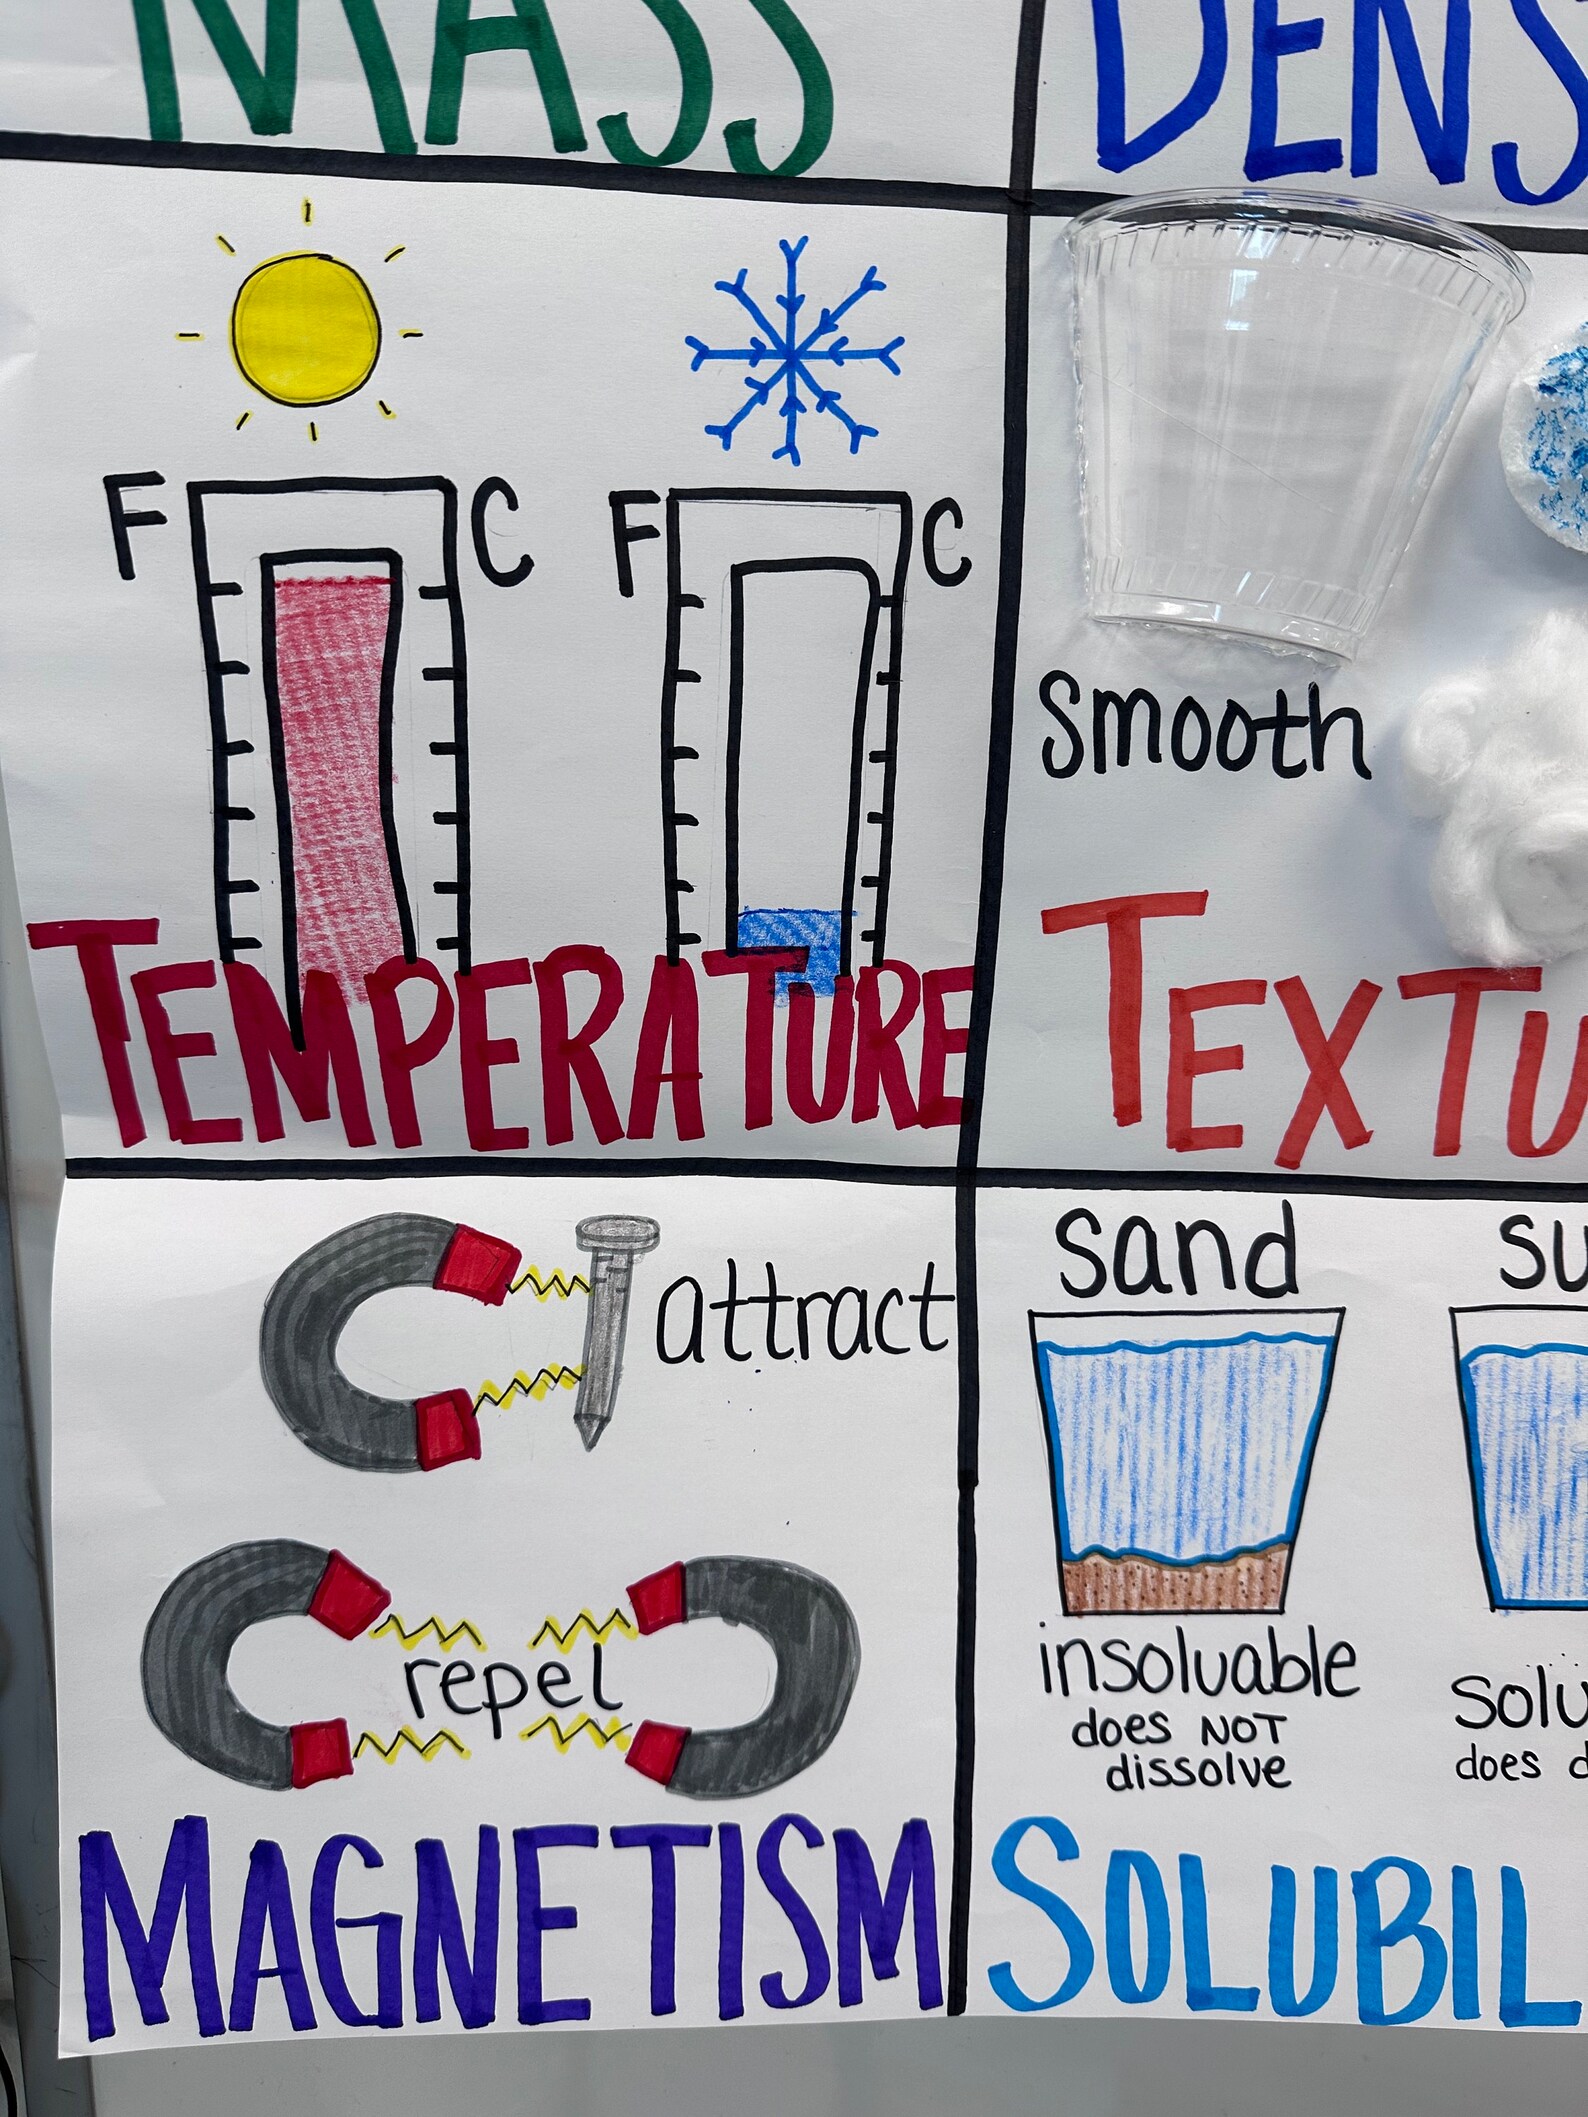 MASS
DENS
F C F C
TEMPERATURE
smooth
TEXTU
attract
repel
MAGNETISM
sand su
insoluable
does NOT
dissolve
solu
does d
SOLUBIL